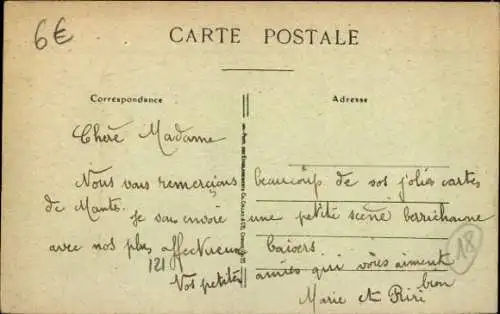 6€
CARTE POSTALE
Correspondance
Adresse
Chère Madame
Nous vous remerçions beaucoup de vos jolies cartes
de Mantes. Je vous envoie une petite scène berrichonne
avec nos plus affectueux baisers
121
Vos petites amies qui vous aiment
bien
Marie et Riri
18